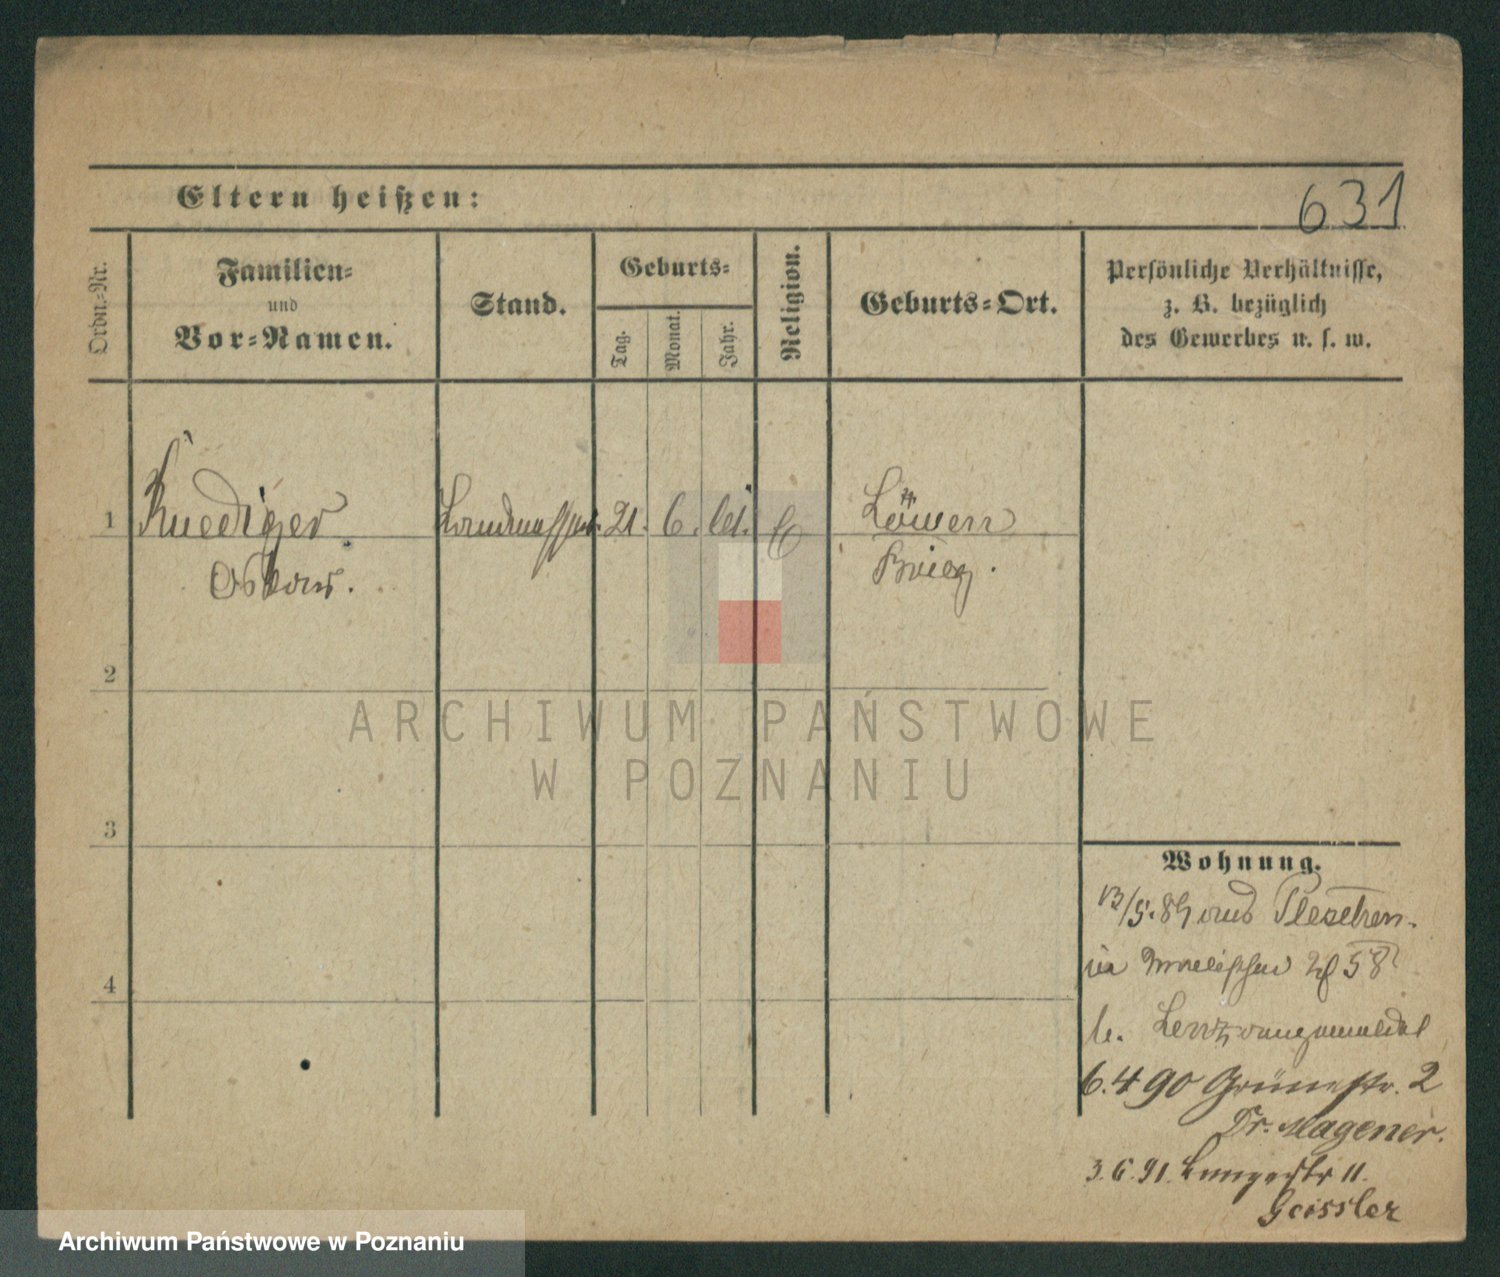 Eltern heißen:
631
Ordn.-Nr.
Familien-
und
Vor-Namen.
Stand.
Geburts-
Tag.
Monat.
Jahr.
Religion.
Geburts-Ort.
Persönliche Verhältnisse,
z. B. bezüglich
des Gewerbes u. s. w.
1
Ruediger
Oskar.
Landmesser.
21.
6.
61.
Löwen
Brieg.
2
3
4
ARCHIWUM PAŃSTWOWE
W POZNANIU
Wohnung.
13/5.89 aus Pleschen.
58
b. Lenz angemeldet
6.4 90 Grünestr. 2
Dr. Magener.
3.6.91. Langestr 11.
Geissler
Archiwum Państwowe w Poznaniu